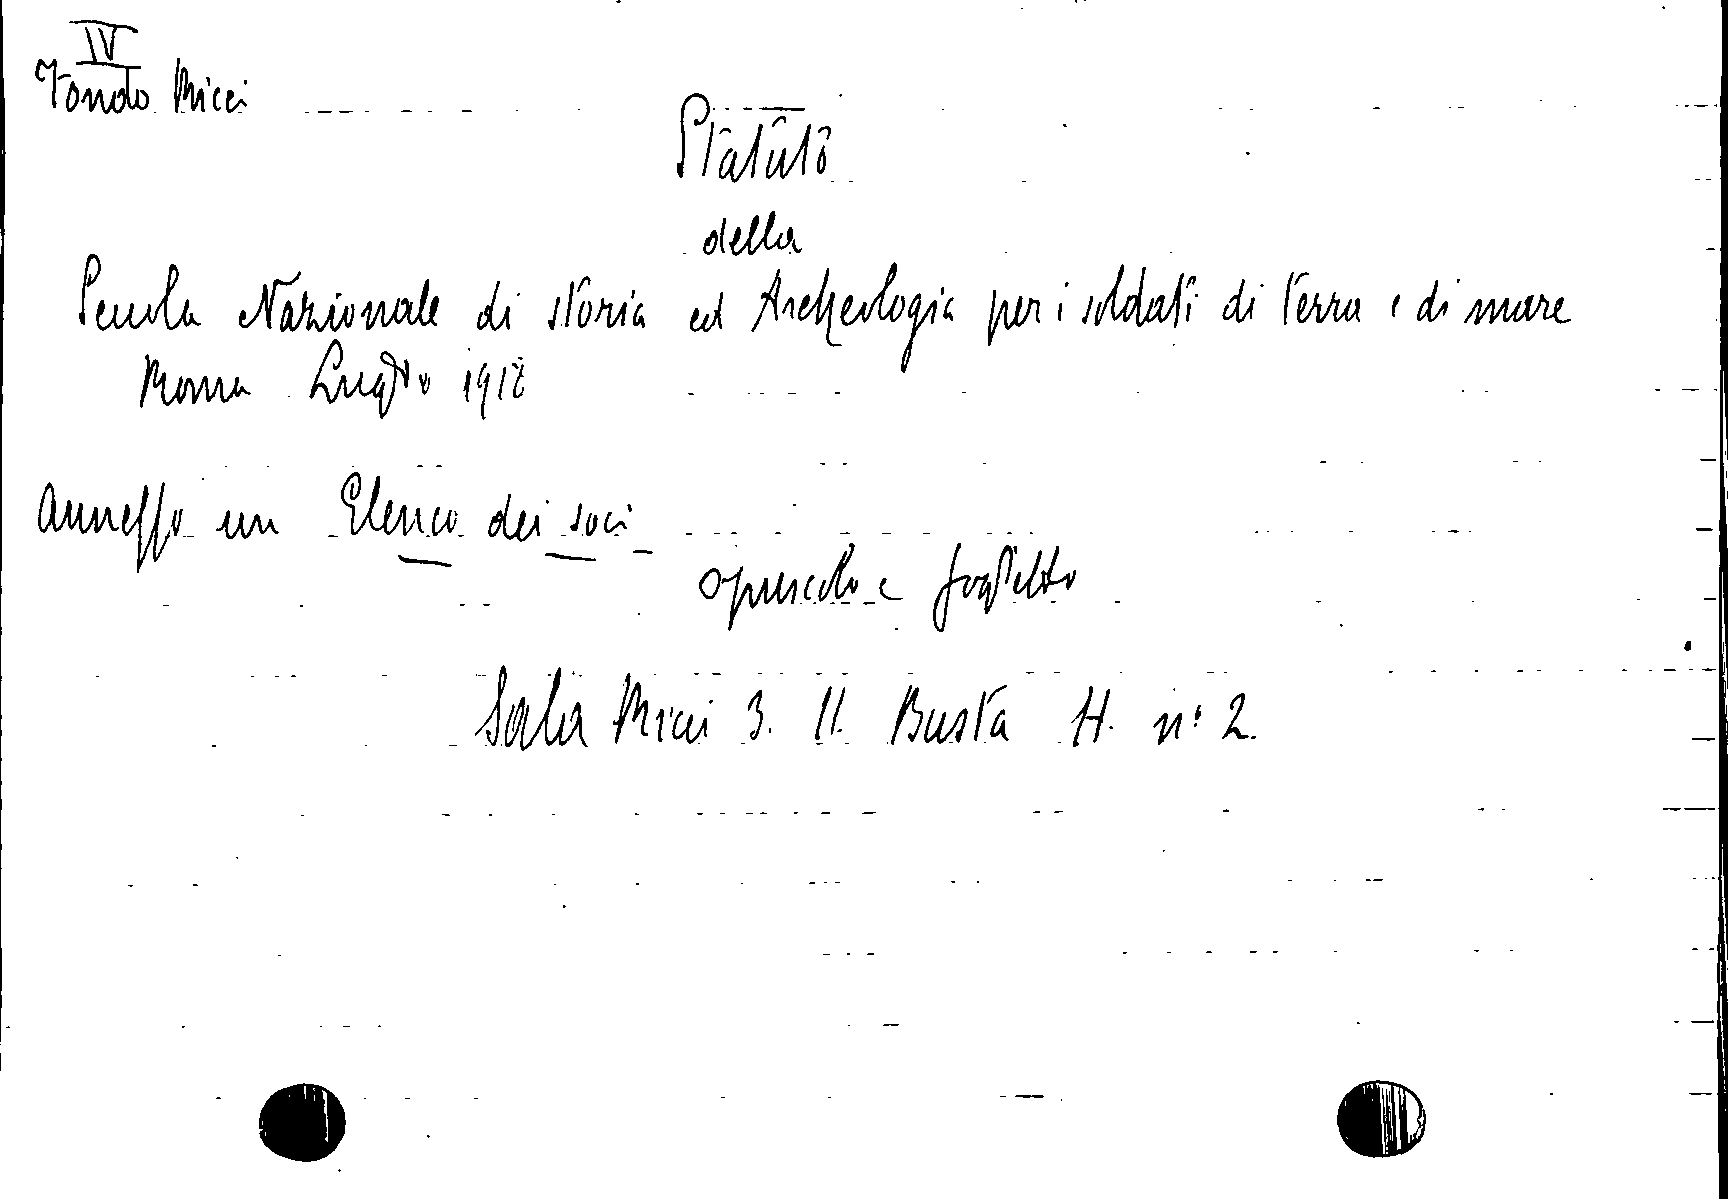 IV
Fondo Ricci
Statuto
della
Scuola Nazionale di storia ed Archeologia per i soldati di terra e di mare
Roma Luglio 1918
Annesso un Elenco dei soci
opuscolo e foglietto
Sala Ricci 3. 11. Busta H. n: 2.